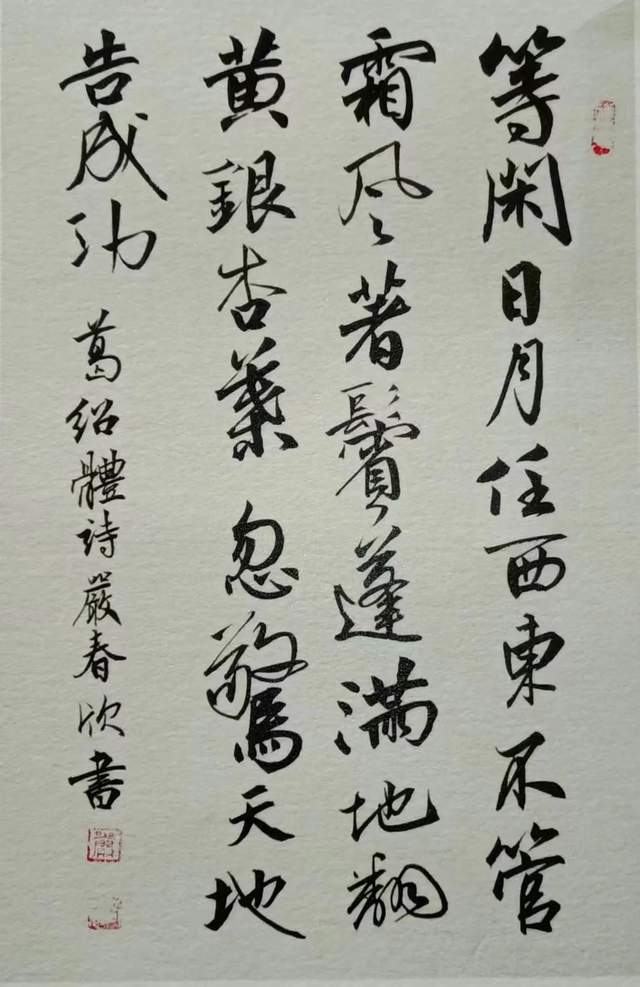 等闲日月任西東不管
霜風著鬢蓬滿地翻
黄銀杏葉忽驚天地
告成功
葛绍體詩嚴春欣書